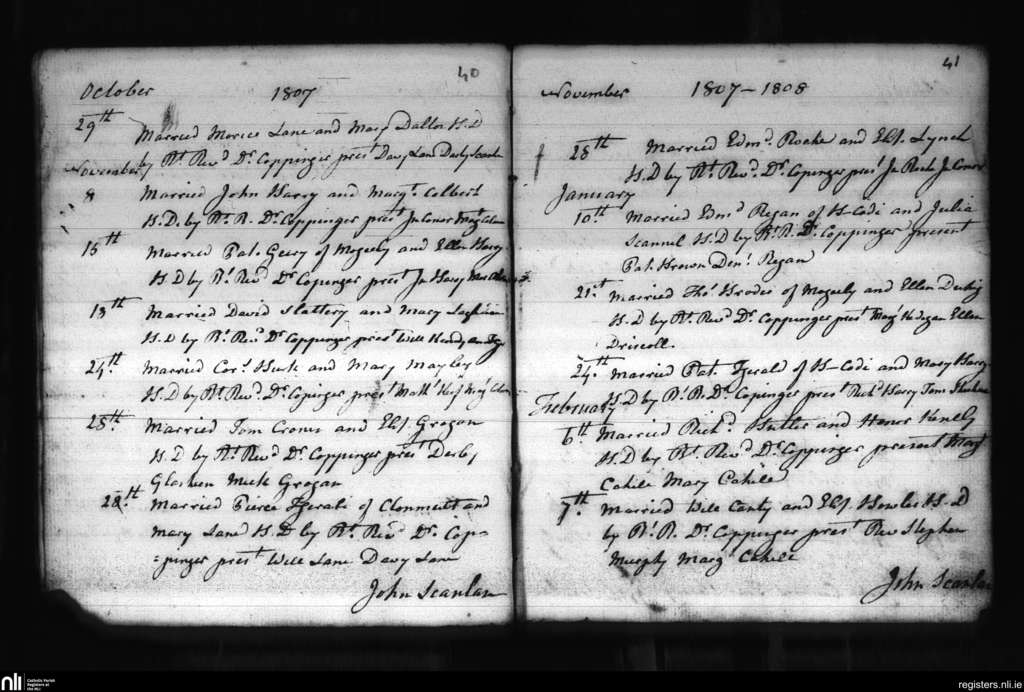 40
October 1807
29th
Married Morice Lane and Mary Dalton H.D
by Rt. Revd. Dr. Coppinger prest. Davy Lane Darby
November
8 Married John Barry and Margt. Colbert
H.D. by Rt. R. Dr. Coppinger prest. Jn Conor
15th Married Pat. Geery of Mogeely and Ellen Barry
H D by Rt. Revd. Dr. Copinger prest. Jn Barry
18th Married David Slattery and Mary
H.D by Rt. Revd. Dr. Coppinger prest. Will
24th. Married Cors. and Mary
H.D by Rt. Revd. Dr. Copinger prest.
25th. Married Tom Crone and Elis. Grogan
H.D by Rt. Revd. Dr. Coppinger prest. Derby
Glashen Grogan
28th. Married Pierce Fgerald of Clonmult and
Mary Lane H.D by Rt. Revd. Dr. Cop=
=pinger prest. Will Lane Davy Lane
John Scanlan
41
November 1807 - 1808
28th Married Edmd. Roche and Elis. Lynch
H.D by Rt. Revd. Dr. Copinger prest. Jn Roch Jn Conor
January
10th Married Edmd Regan of and Julia
Scannel H.D by Rt. R. Dr. Coppinger present
Pat. Brown Denl. Regan
21st Married Thos. Brodie of Mogeely and Ellen
H.D by Rt. Revd. Dr. Coppinger prest. Margt Ellen
Driscoll.
24th. Married Pat. Fgerald of and Mary Barry
H.D by Rt. R. Dr. Copinger prest. Richd Barry Tom
February
6th Married Richd. Butler and Honor
H.D by Rt. Revd. Dr. Coppinger present Margt
Cahill Mary Cahill
7th. Married Will Canty and Elis. H.D
by Rt. R. Dr. Coppinger prest. Rev Stephen
Murphy Margt Cahill
John Scanlan
nli Catholic Parish
Registers at
the NLI
registers.nli.ie